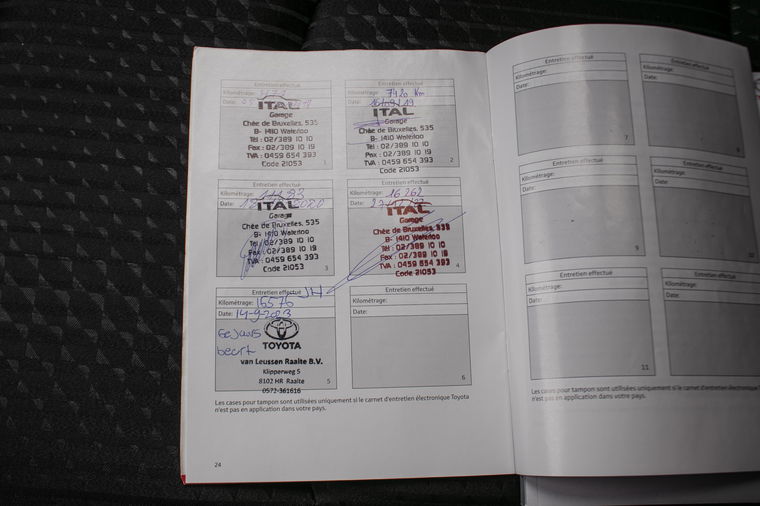 Entretien effectué
Kilométrage:
Date:
ITAL
Garage
Chée de Bruxelles, 535
B- 1410 Waterloo
Tél : 02/389 10 10
Fax : 02/389 10 19
TVA : 0459 654 393
Code 21053
1
Entretien effectué
Kilométrage: 7420 Km
Date: 16/09/19
ITAL
Garage
Chée de Bruxelles, 535
B- 1410 Waterloo
Tél : 02/389 10 10
Fax : 02/389 10 19
TVA : 0459 654 393
Code 21053
2
Entretien effectué
Kilométrage:
Date: 2020
ITAL
Garage
Chée de Bruxelles, 535
B- 1410 Waterloo
Tél : 02/389 10 10
Fax : 02/389 10 19
TVA : 0459 654 393
Code 21053
3
Entretien effectué
Kilométrage: 16262
Date:
ITAL
Garage
Chée de Bruxelles, 535
B- 1410 Waterloo
Tél : 02/389 10 10
Fax : 02/389 10 19
TVA : 0459 654 393
Code 21053
4
Entretien effectué
Kilométrage: 16576 JH
Date: 14-9-2023
TOYOTA
van Leussen Raalte B.V.
Klipperweg 5
8102 HR Raalte
0572-361616
5
Entretien effectué
Kilométrage:
Date:
6
Les cases pour tampon sont utilisées uniquement si le carnet d'entretien électronique Toyota
n'est pas en application dans votre pays.
24
Entretien effectué
Kilométrage:
Date:
7
Entretien effectué
Kilométrage:
Date:
8
Entretien effectué
Kilométrage:
Date:
9
Entretien effectué
Kilométrage:
Date:
10
Entretien effectué
Kilométrage:
Date:
11
Entretien effectué
Kilométrage:
Date:
Les cases pour tampon sont utilisées uniquement si le carnet d'entretien électronique
n'est pas en application dans votre pays.